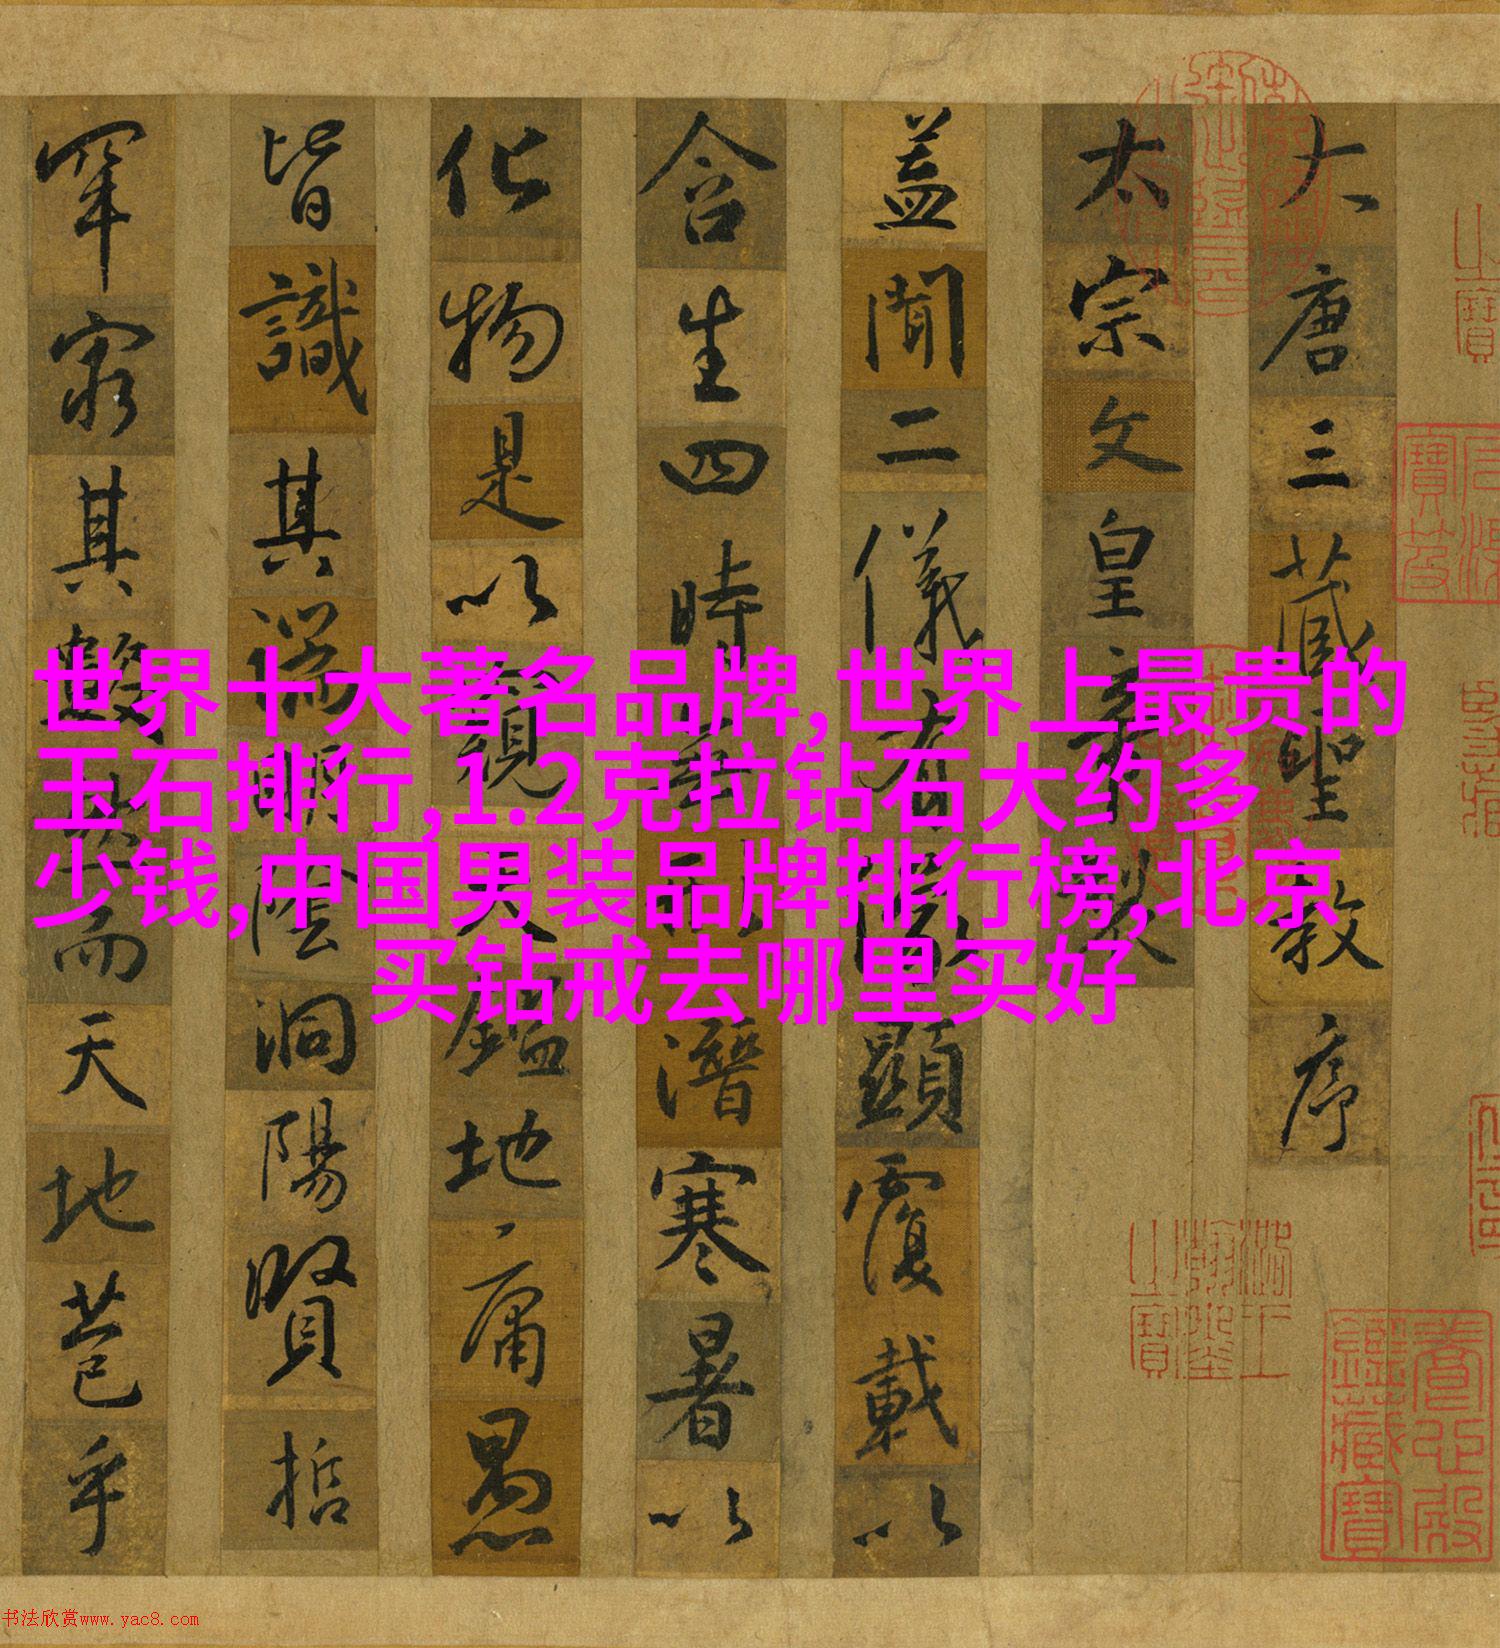 大唐三藏聖教序
太宗文皇帝製
蓋聞二儀有像顯覆載以
含生四時無形潛寒暑以
化物是以窺天鑑地庸愚
皆識其端明陰洞陽賢哲
罕窮其數然而天地苞乎
世界十大著名品牌,世界上最贵的
玉石排行,1.2克拉钻石大约多
少钱,中国男装品牌排行榜,北京
买钻戒去哪里买好
養心殿鑑藏寶
书法欣赏www.yac8.com